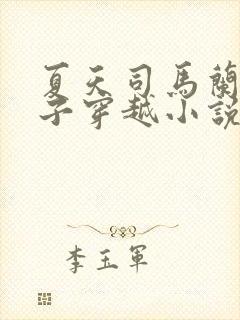 夏天司馬蘭
子穿越小說
李玉軍